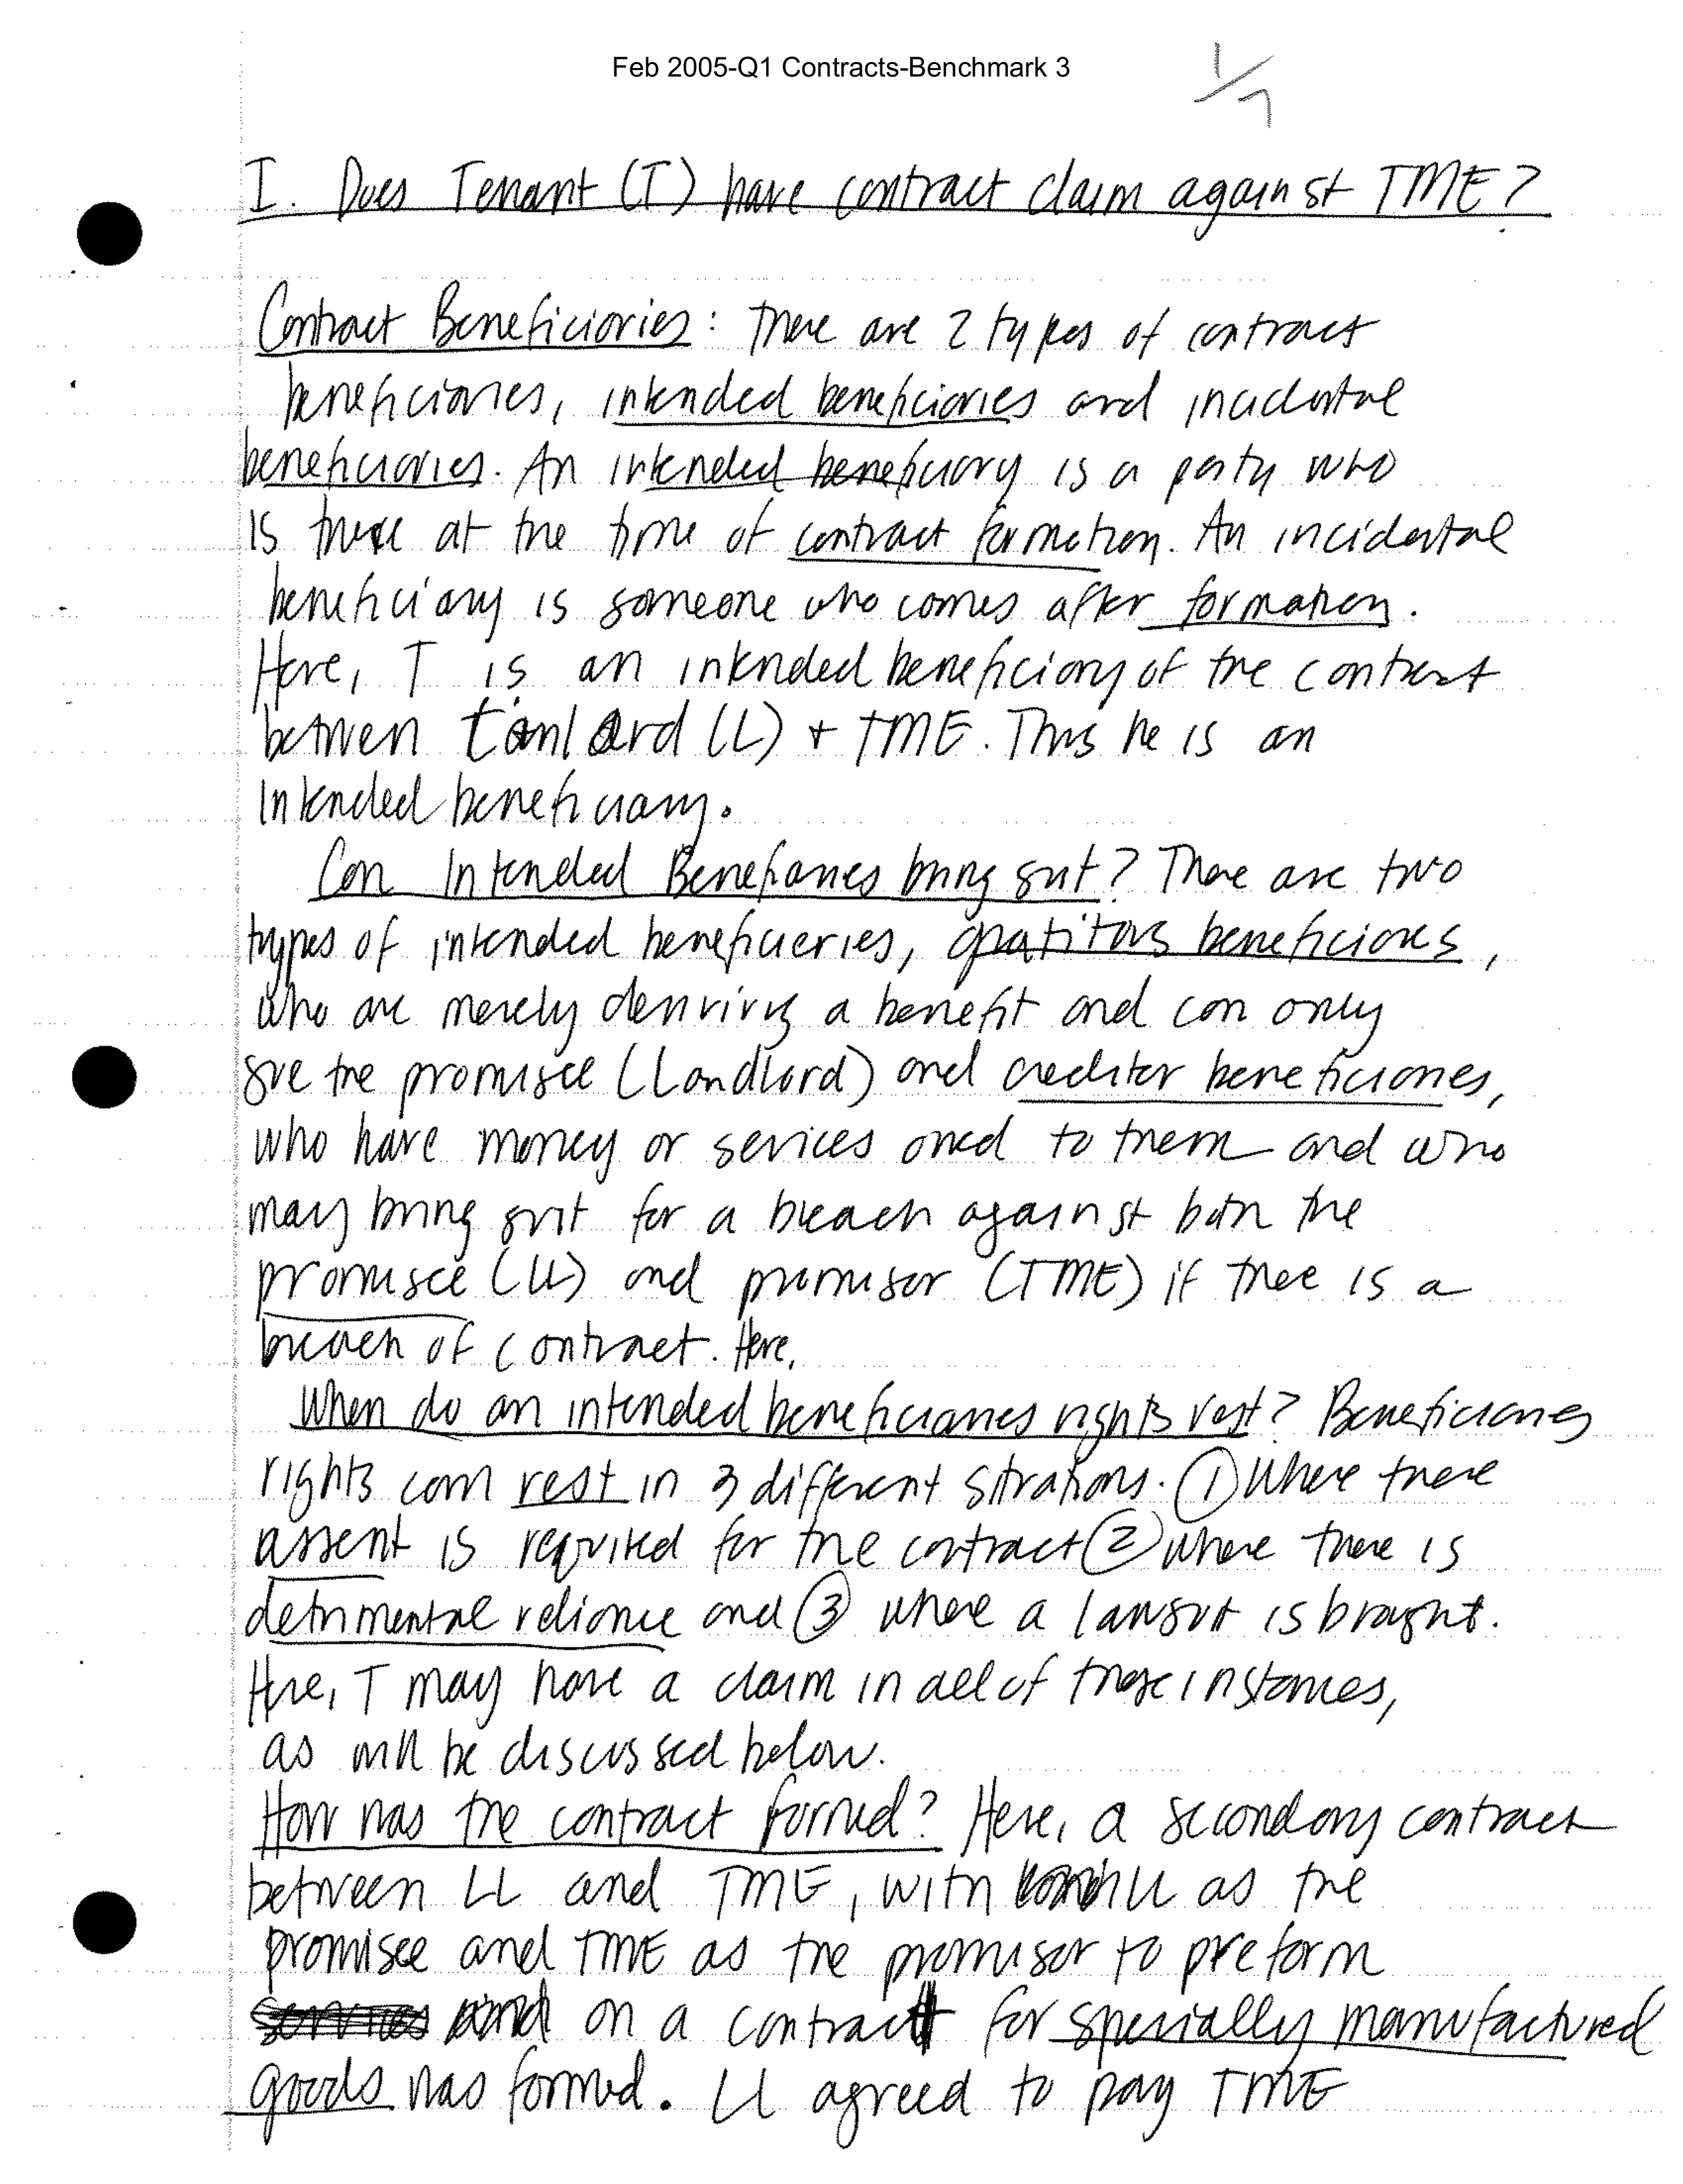 Feb 2005-Q1 Contracts-Benchmark 3
1/7
I. Does Tenant (T) have contract claim against TME?
Contract Beneficiaries: There are 2 types of contract
beneficiaries, intended beneficiaries and incidental
beneficiaries. An intended beneficiary is a party who
is there at the time of contract formation. An incidental
beneficiary is someone who comes after formation.
Here, T is an intended beneficiary of the contract
between Lanlord (L) + TME. Thus he is an
intended beneficiary.
Can Intended Benefiaries bring suit? There are two
types of intended beneficieries, gratitous beneficiaries,
who are merely deriving a benefit and can only
sue the promisee (Landlord) and creditor beneficiaries,
who have money or sevices owed to them and who
may bring suit for a breach against both the
promisee (LL) and promisor (TME) if there is a
breach of contract. Here,
When do an intended beneficiaries rights vest? Beneficiaries
rights can vest in 3 different situations. (1) Where there
assent is required for the contract (2) where there is
detrimental reliance and (3) where a lawsuit is brought.
Here, T may have a claim in all of those instances,
as will be discussed below.
How was the contract formed? Here, a secondary contract
between LL and TME, with LL as the
promisee and TME as the promisor to preform
on a contract for specially manufactured
goods was formed. LL agreed to pay TME